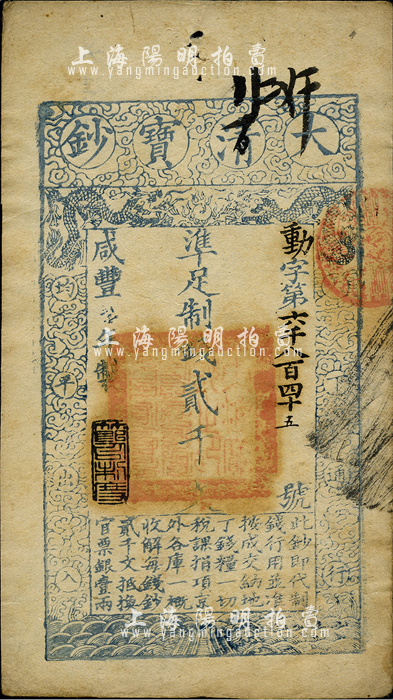 上海陽明拍賣
www.yangmingauction.com
大清寶鈔
動字第六千八百四十五號
準足制錢貳千文
咸豐
製
此鈔即代制
錢行用並准
按成交納地
丁錢糧一切
稅課捐項京
外各庫一概
收解每錢鈔
貳千文抵換
官票銀壹兩
平
通行
上海陽明拍賣
www.yangmingauction.com
上海陽明拍賣
www.yangmingauction.com